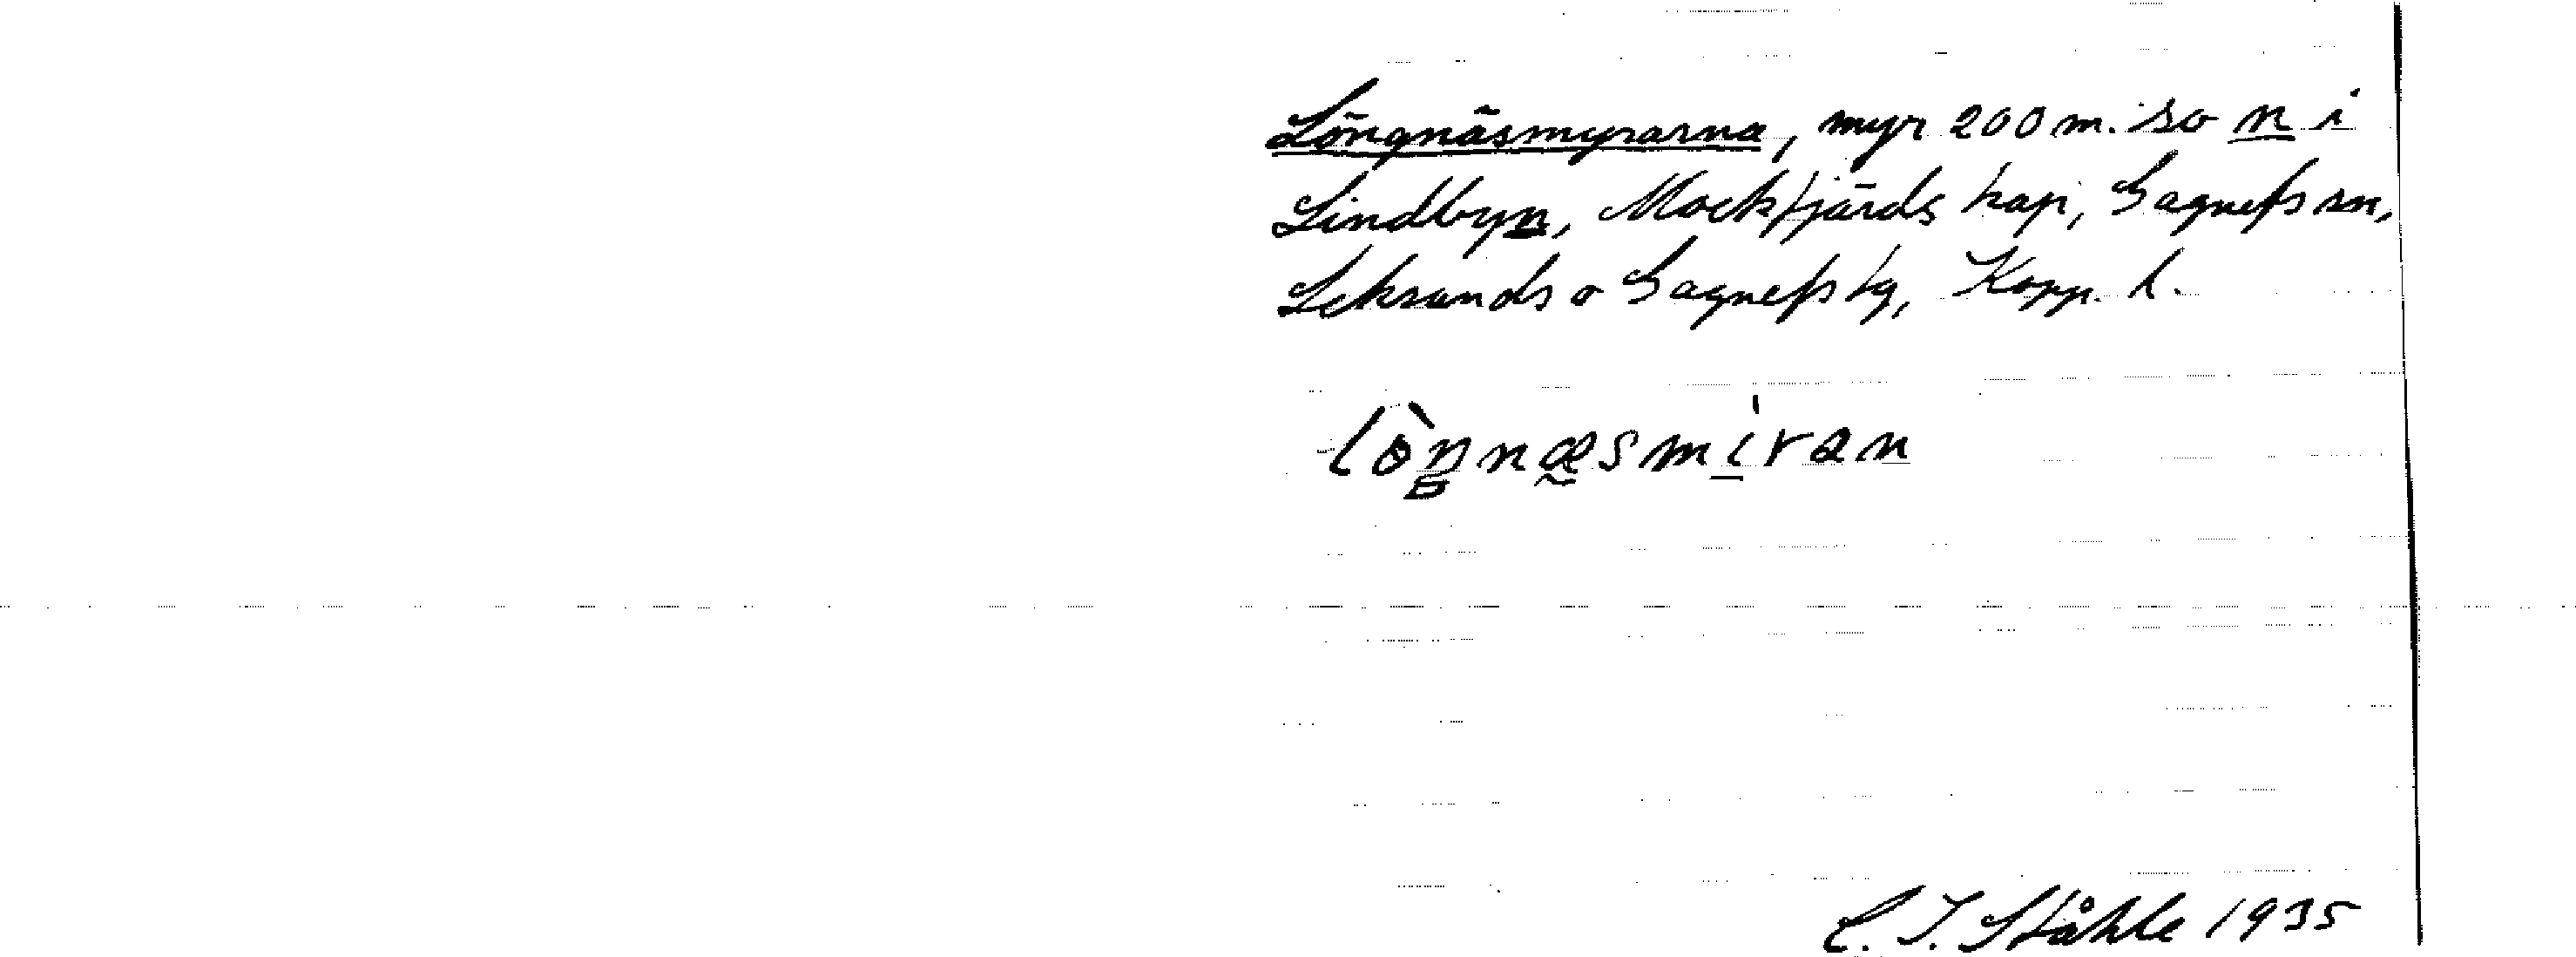 Löngnäsmyrarna, myr 200 m. so n i
Lindbyn, Mockfjärds kap, Gagnefs sn,
Leksands o Gagnefs tg, Kopp. l.
lòŋnæsmìran
C. I. Ståhle 1935